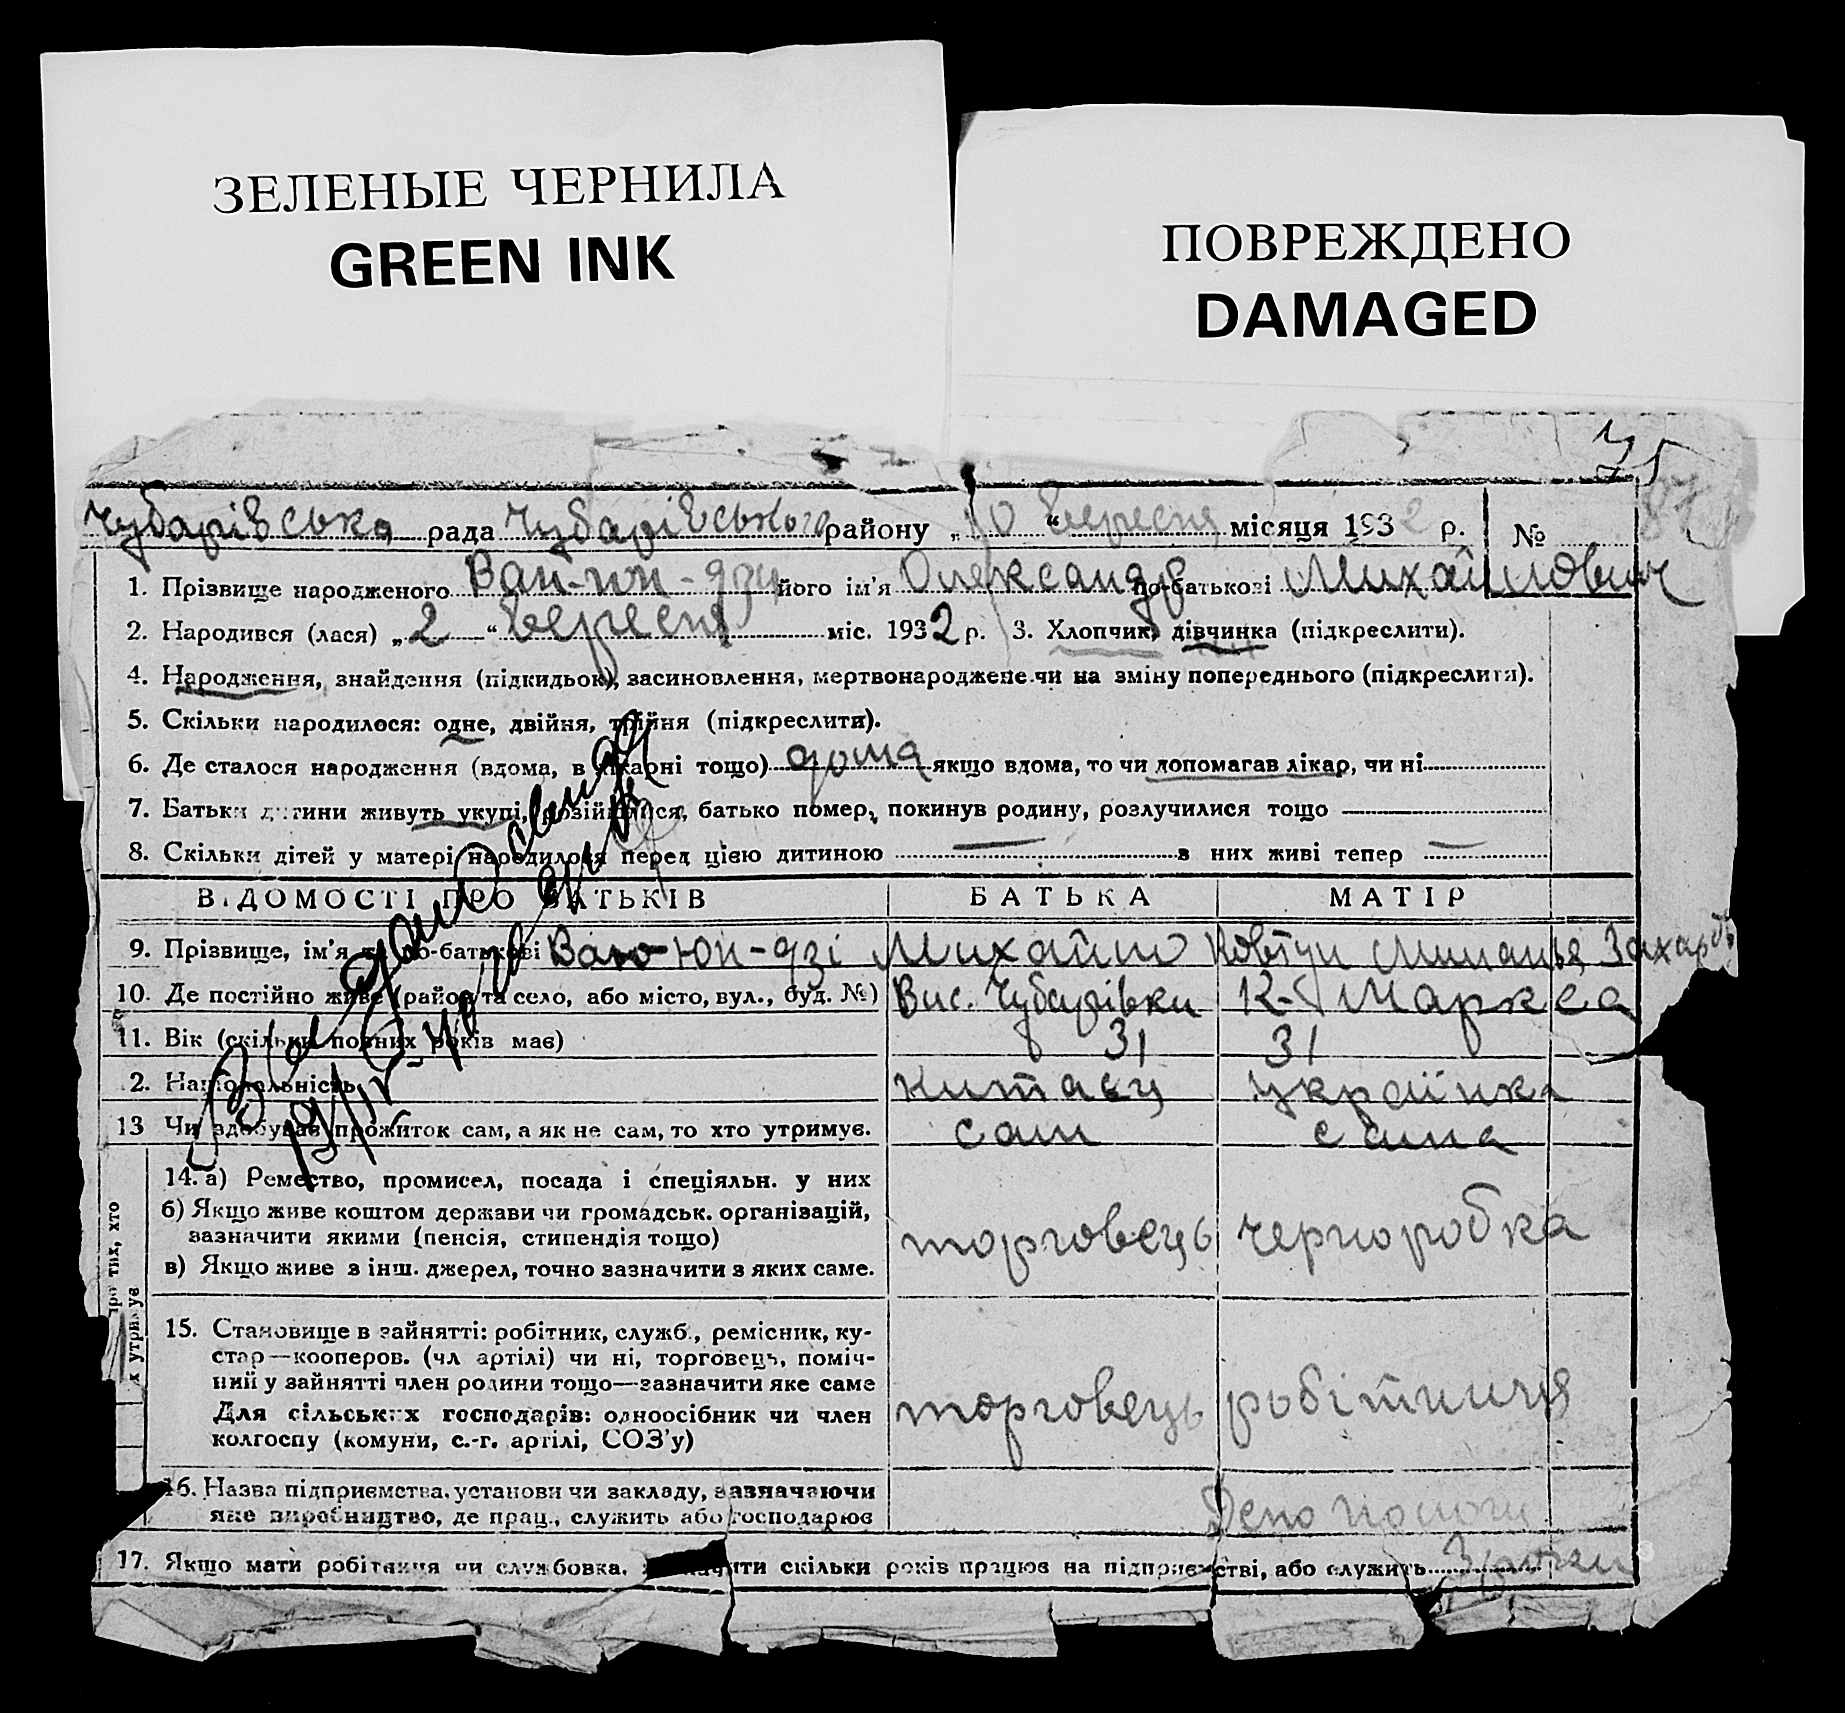 ЗЕЛЕНЫЕ ЧЕРНИЛА
GREEN INK
ПОВРЕЖДЕНО
DAMAGED
75
Чубарівська рада Чубарівського району „10“ вересня місяця 1932 р. № 87
1. Прізвище народженого Ван-юн-дзи його ім'я Олександр по-батькові Михайлович
2. Народився (лася) „2“ вересня міс. 1932 р. 3. Хлопчик, дівчинка (підкреслити).
4. Народження, знайдення (підкидьок), засиновлення, мертвонароджене чи на зміну попереднього (підкреслити).
5. Скільки народилося: одне, двійня, трійня (підкреслити).
6. Де сталося народження (вдома, в лікарні тощо) дома якщо вдома, то чи допомагав лікар, чи ні
7. Батьки дитини живуть укупі, розійшлися, батько помер, покинув родину, розлучилися тощо —
8. Скільки дітей у матері народилося перед цією дитиною — з них живі тепер —
ВІДОМОСТІ ПРО БАТЬКІВ БАТЬКА МАТІР
9. Прізвище, ім'я та по-батькові Ван-юн-дзі Михайло Ковтун Захаров
10. Де постійно живе (район та село, або місто, вул., буд. №) Вис. Чубарівки К-Маркса
11. Вік (скільки повних років має) 31 31
12. Національність китаєць українка
13 Чи здобуває прожиток сам, а як не сам, то хто утримує. сам сама
14. а) Ремество, промисел, посада і спеціяльн. у них
б) Якщо живе коштом держави чи громадськ. організацій,
зазначити якими (пенсія, стипендія тощо) торговець черноробка
в) Якщо живе з інш. джерел, точно зазначити з яких саме.
15. Становище в зайнятті: робітник, служб., ремісник, ку-
стар—кооперов. (чл артілі) чи ні, торговець, поміч-
ний у зайнятті член родини тощо—зазначити яке саме
торговець робітниця
Для сільських господарів: одноосібник чи член
колгоспу (комуни, с.-г. артілі, СОЗ'у)
16. Назва підприємства, установи чи закладу, зазначаючи
яке виробництво, де прац., служить або господарює Депо
17. Якщо мати робітниця чи службовка, скільки років працює на підприємстві, або служить 3 роки